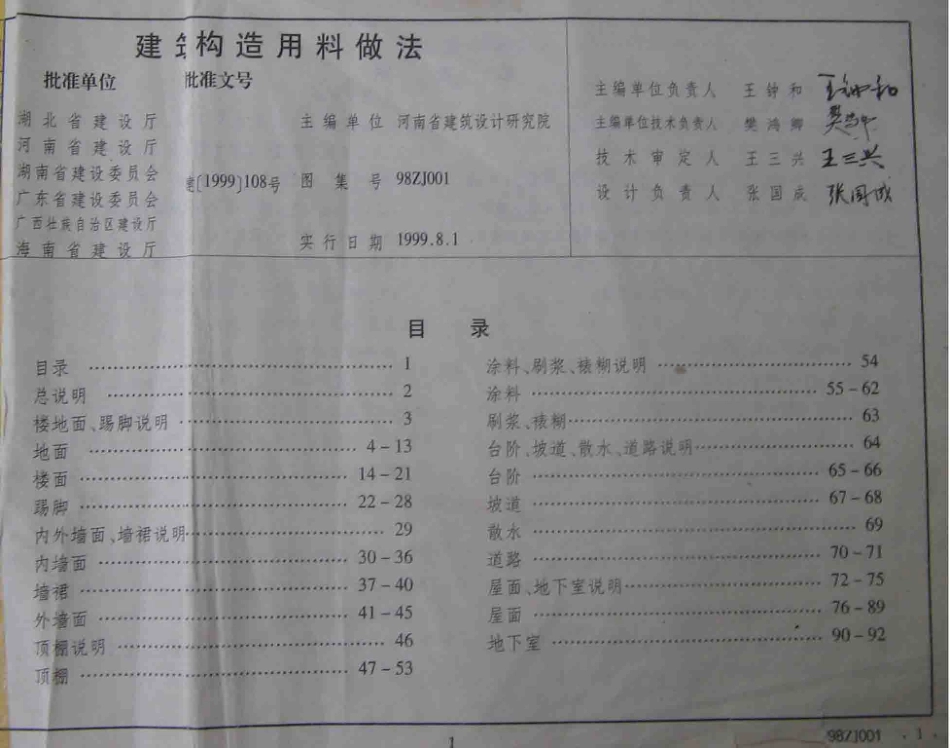 建筑构造用料做法
批准单位 批准文号
湖北省建设厅
河南省建设厅
湖南省建设委员会
广东省建设委员会
广西壮族自治区建设厅
海南省建设厅
建[1999]108号
主编单位 河南省建筑设计研究院
图集号 98ZJ001
实行日期 1999.8.1
主编单位负责人 王钟和 王钟和
主编单位技术负责人 樊鸿卿
技术审定人 王三兴 王三兴
设计负责人 张国成 张国成
目 录
目录 1
总说明 2
楼地面、踢脚说明 3
地面 4-13
楼面 14-21
踢脚 22-28
内外墙面、墙裙说明 29
内墙面 30-36
墙裙 37-40
外墙面 41-45
顶棚说明 46
顶棚 47-53
涂料、刷浆、裱糊说明 54
涂料 55-62
刷浆、裱糊 63
台阶、坡道、散水、道路说明 64
台阶 65-66
坡道 67-68
散水 69
道路 70-71
屋面、地下室说明 72-75
屋面 76-89
地下室 90-92
1
98ZJ001 1